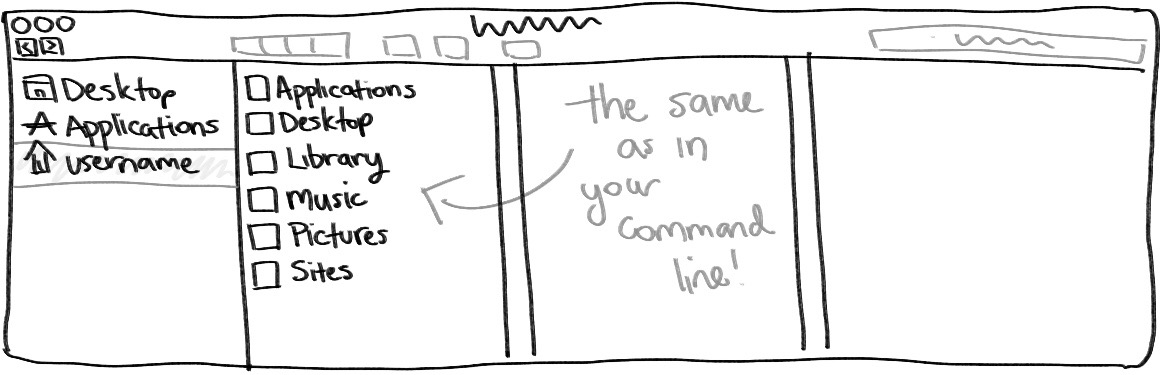 Desktop
Applications
username
Applications
Desktop
Library
Music
Pictures
Sites
the same
as in
your
command
line!